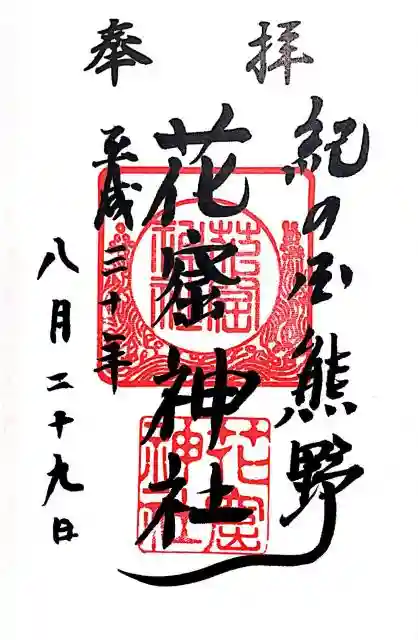 奉拝
紀の国熊野
花窟神社
平成三十年
八月二十九日
花窟神社
花窟神社